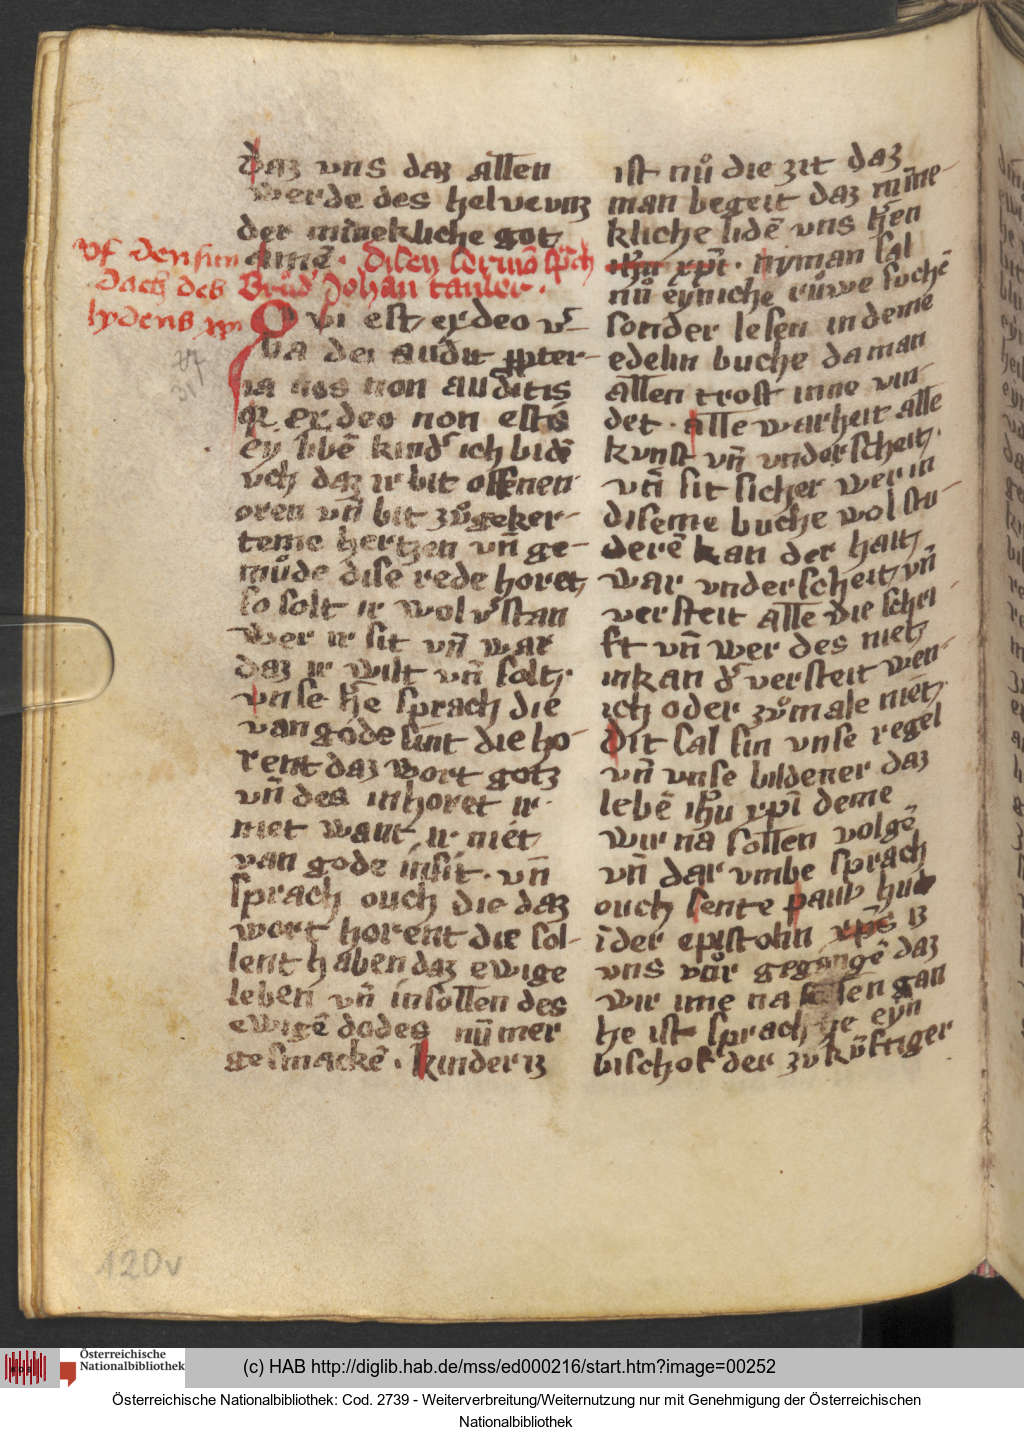 daz vns daz allen
werde des helve vnz
der mīnekliche got
amē · Disen sermō sp̄ch
Brůd' Johan tauler ·
vf den sun
dach des
lydens xpi
Qvi est ex deo v'
ba dei audit ꝓpter-
ea vos non auditis
qr ex deo non estis
ey libē kind' ich bidē
vch daz ir bit offenen
oren vn̄ bit zůgeker-
teme hertzen vn̄ ge-
můde dise rede horet
so solt ir wol v'stan
wer ir sit vn̄ war
daz ir wilt vn̄ solt·
vnse h're sprach die
van gode sint die ho-
rent daz wort gotz
vn̄ des inhoret ir·
niet want ir niet
van gode insit· vn̄
sprach ouch die daz
wort horent die sol-
lent haben daz ewige
leben vn̄ insollen des
ewigē dodes nūmer
gesmackē · kinder iz
ist nů die zit daz
man begeit daz mīne-
kliche lidē vns h'ren
ih'u xp̄i · nyman sal
nů eyniche růwe suchē
sonder lesen in deme
edeln buche da man
allen trost inne vin-
det · alle warheit alle
kunst vn̄ vnderscheit·
vn̄ sit sicher wer in
diseme buche wol stu-
derē kan der hait
war vnderscheit vn̄
versteit alle die schri
ft vn̄ wer des niet
inkan d' versteit wen-
ich oder zůmale niet·
Dit sal sin vnse regel
vn̄ vnse bildener daz
lebē ih'u xp̄i deme
wir na sollen volgē
vn̄ dar vmbe sprach
ouch sente paulus
ī der epistolin xp̄s iz
vns vůr gegangē daz
wir ime na sollen gan
he ist sprach he eyn
bischof der zů kůftiger
120v
(c) HAB http://diglib.hab.de/mss/ed000216/start.htm?image=00252
Österreichische
Nationalbibliothek
Österreichische Nationalbibliothek: Cod. 2739 - Weiterverbreitung/Weiternutzung nur mit Genehmigung der Österreichischen
Nationalbibliothek